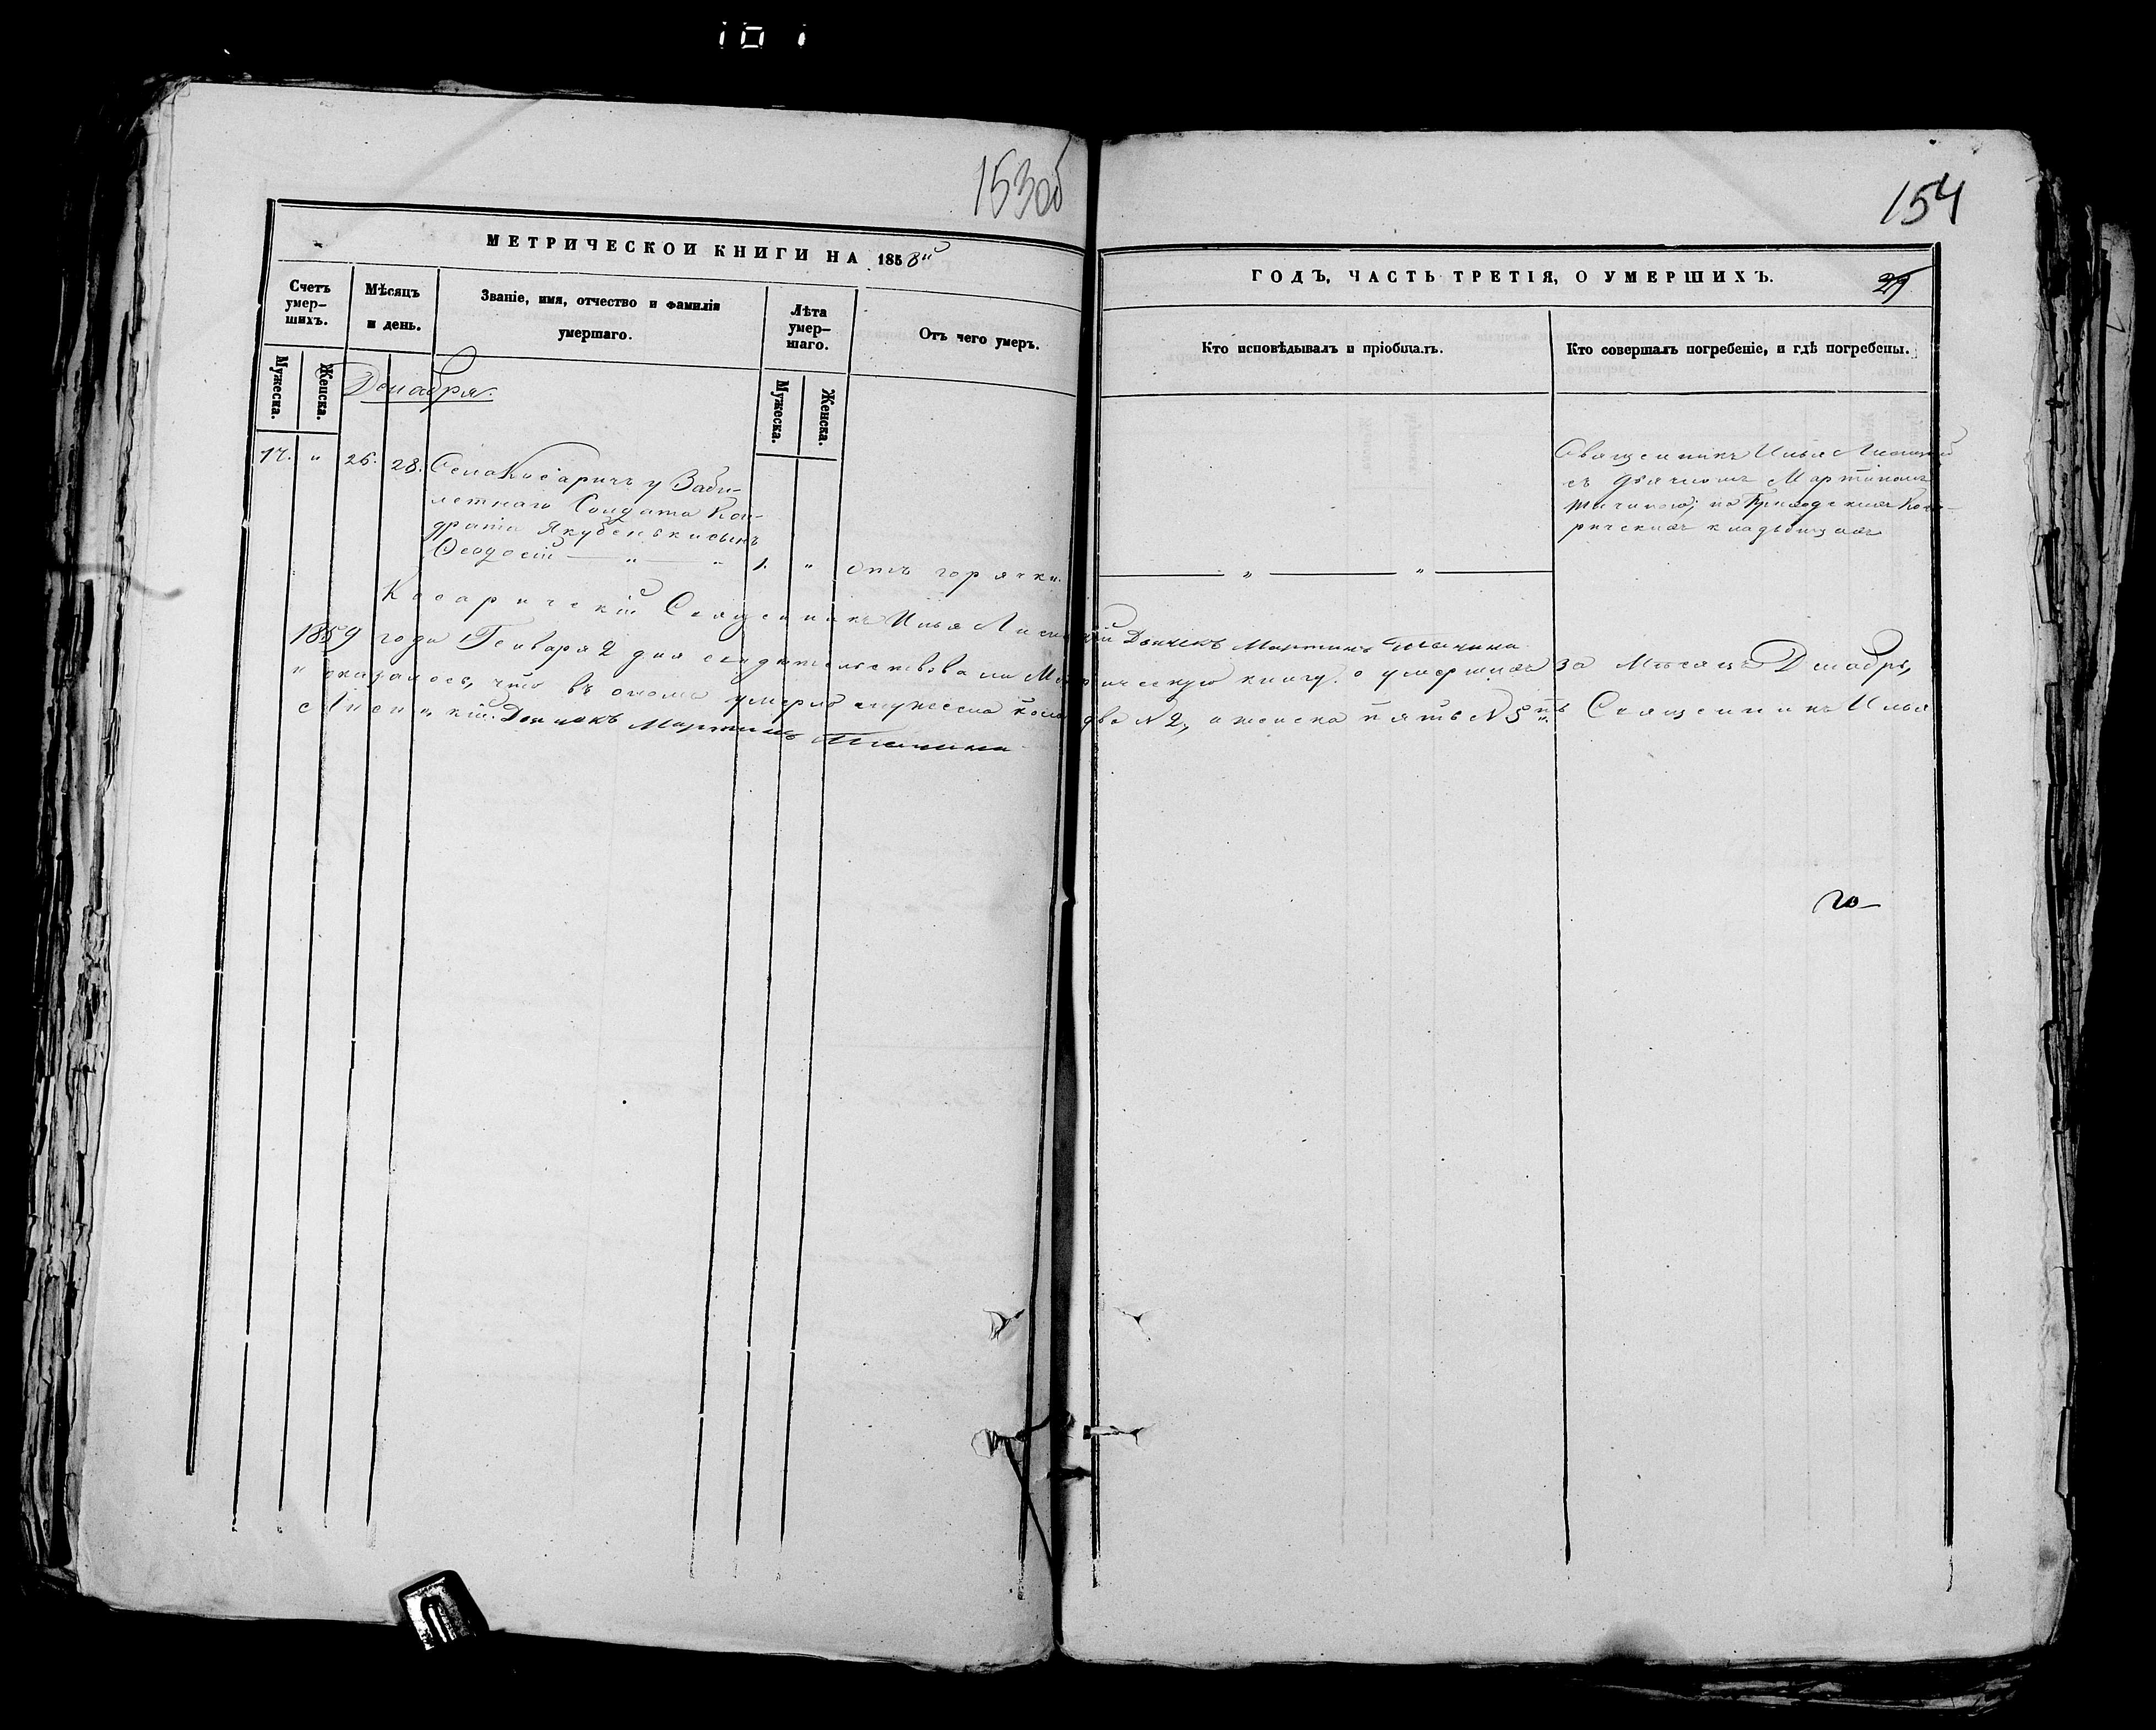 101
153об
154
МЕТРИЧЕСКОЙ КНИГИ НА 1858й
ГОДЪ, ЧАСТЬ ТРЕТІЯ, О УМЕРШИХЪ.
29
Счетъ умер-
шихъ.
Мѣсяцъ
и день.
Званіе, имя, отчество и фамилія
умершаго.
Лѣта
умер-
шаго.
Отъ чего умеръ.
Кто исповѣдывалъ и пріобщалъ.
Кто совершалъ погребеніе, и гдѣ погребены.
Мужеска.
Женска.
Мужеска.
Женска.
Декабря.
17. " 26. 28. Села Косаричъ у Заби-
летнаго Солдата Кон-
драта Якубенька сынъ
Ѳеодосій — " — " 1. " отъ горячки. — " — " —
Священникъ Илья Лисицкій
съ дьячкомъ Мартиномъ
Тычиною; на Приходскомъ Коса-
рическомъ кладбищѣ
Косарическій Священникъ Илья Лисицкій Дьячекъ Мартинъ Тычина
1859 года Генваря 2 дня свидѣтельствовали Метрическую книгу о умершихъ за Мѣсяцъ Декабрь,
и оказалось, что въ ономъ умерло мужеска пола два N 2, а женска пять N 5ть Священникъ Илья
Лисицкій. Дьячокъ Мартинъ Тычина